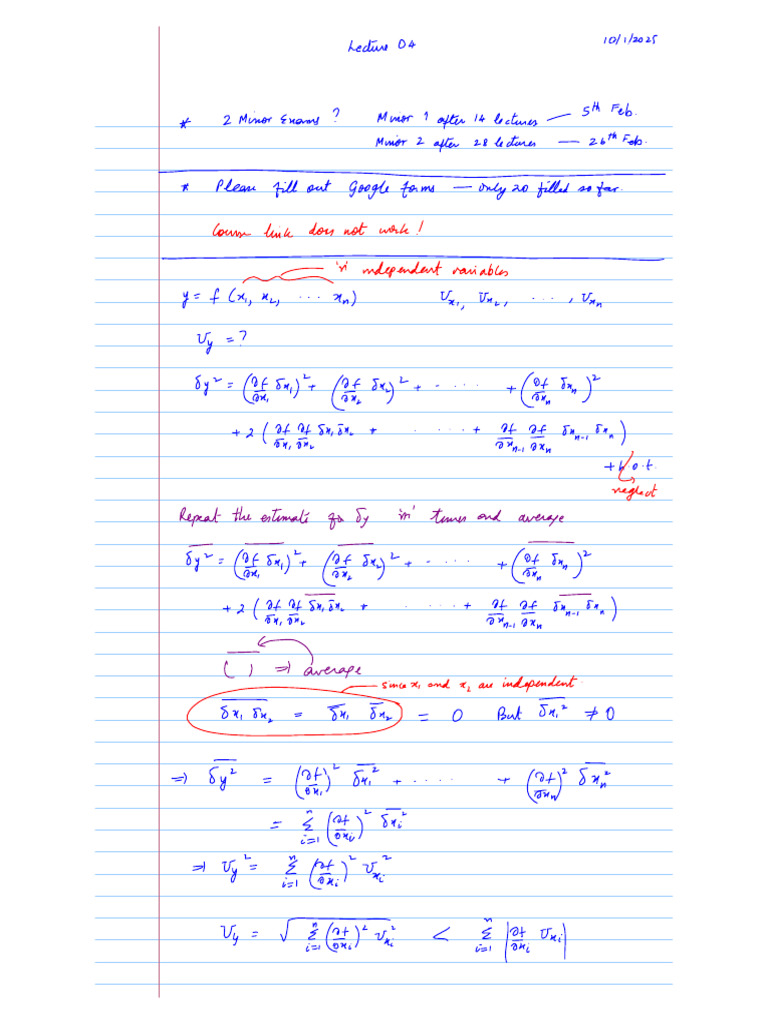 Lecture 04
10/1/2025
* 2 Minor Exams? Minor 1 after 14 lectures — 5th Feb.
Minor 2 after 28 lectures — 26th Feb.
* Please fill out Google forms — only 20 filled so far.
Course link does not work!
'n' independent variables
y = f (x₁, x₂, ... xₙ) U_x₁, U_x₂, ..., U_xₙ
U_y = ?
δy² = (∂f/∂x₁ δx₁)² + (∂f/∂x₂ δx₂)² + ..... + (∂f/∂xₙ δxₙ)²
+ 2 (∂f/∂x₁ ∂f/∂x₂ δx₁ δx₂ + ..... + ∂f/∂xₙ₋₁ ∂f/∂xₙ δxₙ₋₁ δxₙ)
+ h.o.t.
neglect
Repeat the estimate for δy 'm' times and average
\overline{δy²} = \overline{(∂f/∂x₁ δx₁)²} + \overline{(∂f/∂x₂ δx₂)²} + ..... + \overline{(∂f/∂xₙ δxₙ)²}
+ 2 (∂f/∂x₁ ∂f/∂x₂ \overline{δx₁ δx₂} + ..... + ∂f/∂xₙ₋₁ ∂f/∂xₙ \overline{δxₙ₋₁ δxₙ})
\overline{( )} ⇒ average
since x₁ and x₂ are independent
\overline{δx₁ δx₂} = \overline{δx₁} \overline{δx₂} = 0 But \overline{δx₁²} ≠ 0
⇒ \overline{δy²} = (∂f/∂x₁)² \overline{δx₁²} + ..... + (∂f/∂xₙ)² \overline{δxₙ²}
= Σ_{i=1}^{n} (∂f/∂xᵢ)² \overline{δxᵢ²}
⇒ U_y² = Σ_{i=1}^{n} (∂f/∂xᵢ)² U_xᵢ²
U_y = √(Σ_{i=1}^{n} (∂f/∂xᵢ)² U_xᵢ²) < Σ_{i=1}^{n} |∂f/∂xᵢ U_xᵢ|